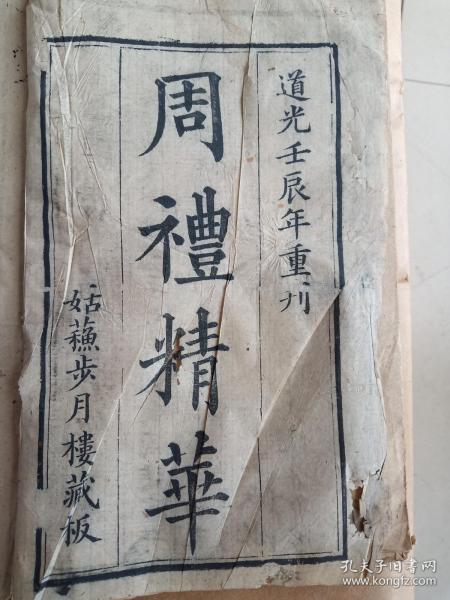 道光壬辰年重刋
周禮精華
姑蘓步月樓藏板
孔夫子旧书网
www.kongfz.com